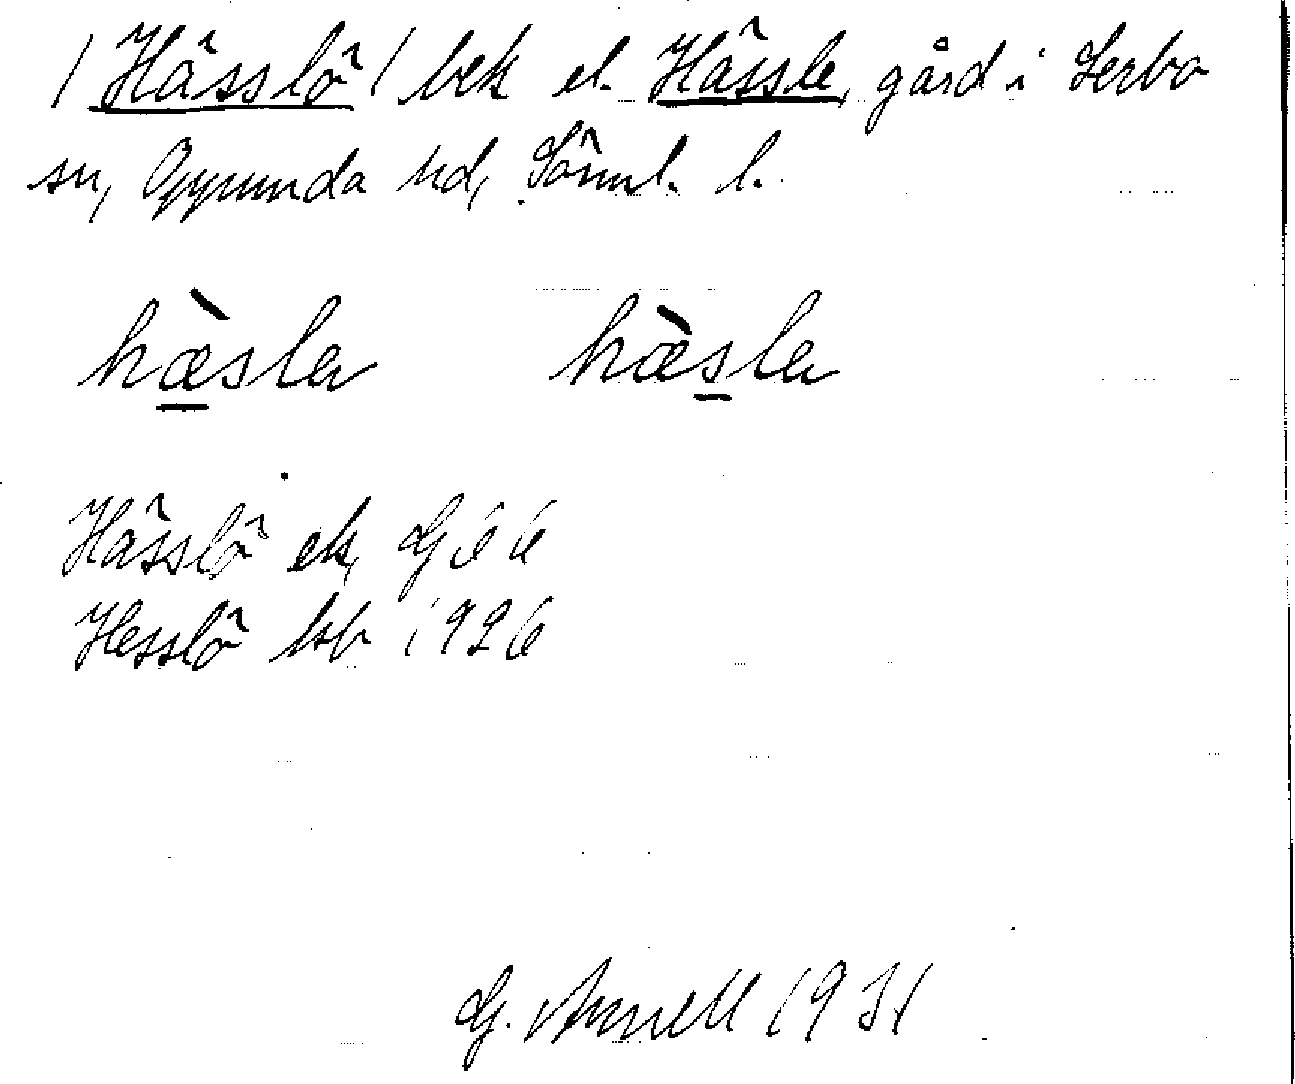 / Hässlö / bek el. Hässle, gård i Lerbo
sn, Oppunda hd, Söml. l.
hæ̀sla hæ̀sla
Hässlö ek, Gj 66
Hesslö ksb 1926
G. Arnell 1931